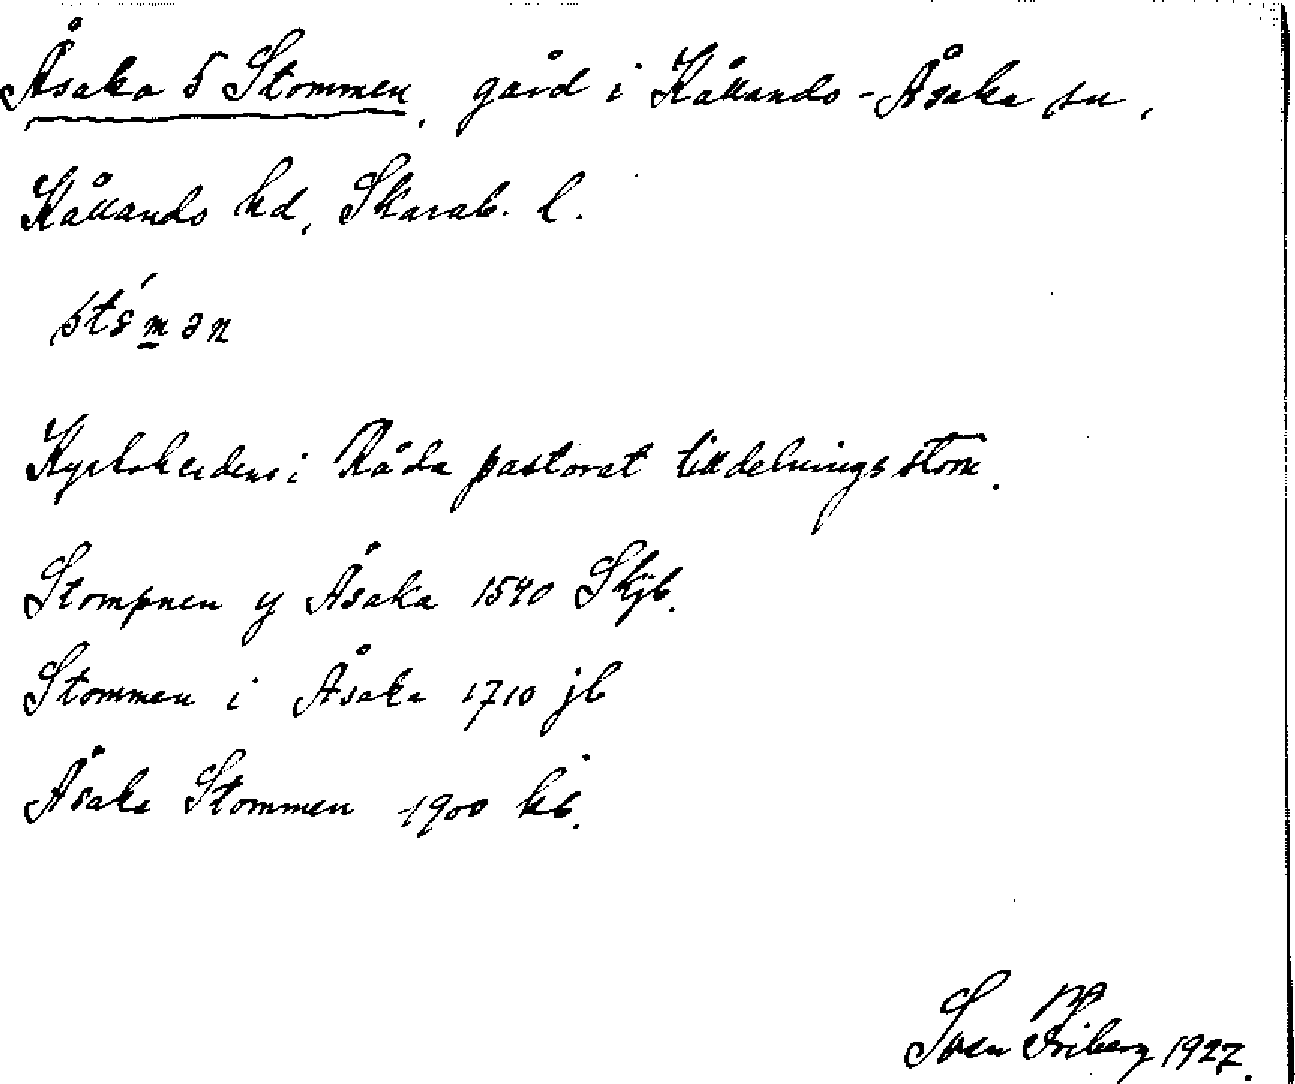 Åsaka 5 Stommen, gård i Kållands-Åsaka sn,
Kållands hd, Skarab. l.
Kyrkoherdens i Råda pastorat tilldelningsstom.
Stompnen y Åsaka 1540 Skjb.
Stommen i Åsaka 1710 jb
Åsaka Stommen 1900 kb.
Sven Friberg 1927.